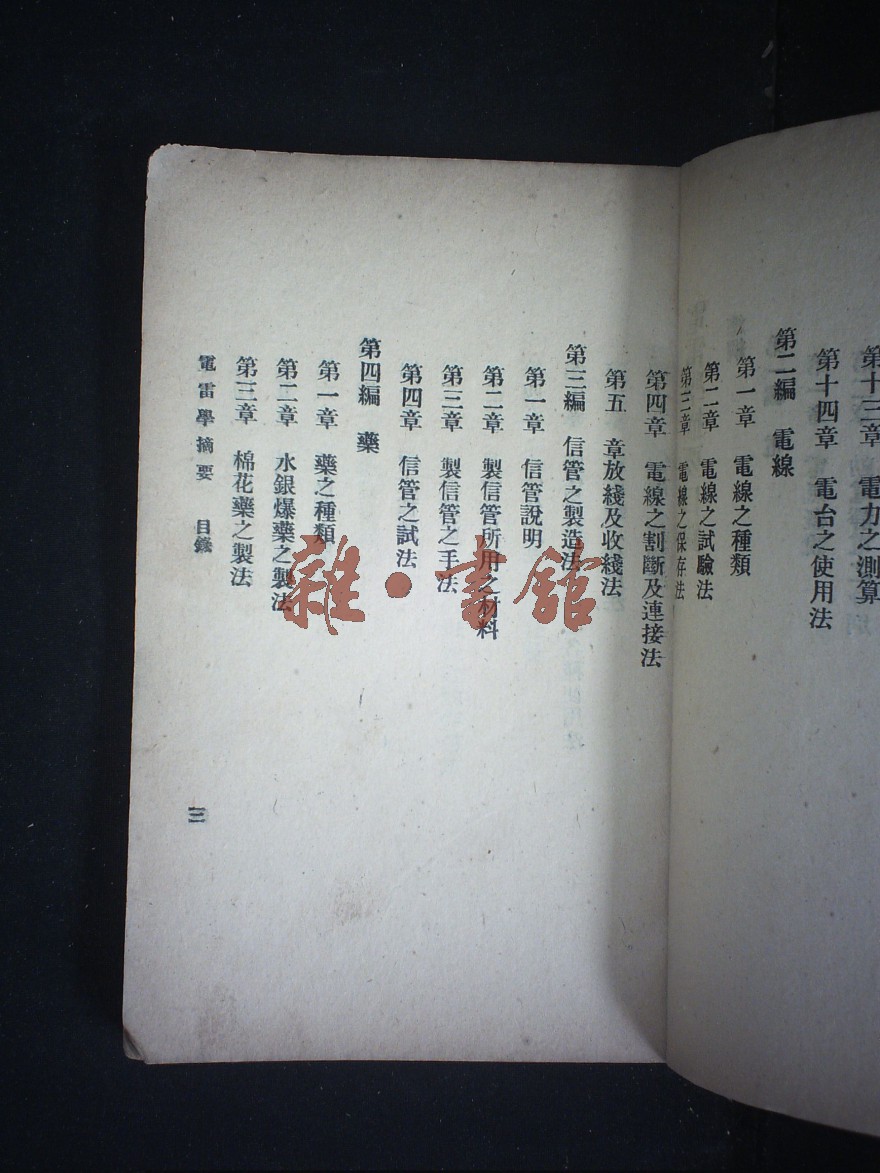 第十三章　電力之測算
第十四章　電台之使用法
第二編　電線
第一章　電線之種類
第二章　電線之試驗法
第三章　電線之保存法
第四章　電線之割斷及連接法
第五　章放綫及收綫法
第三編　信管之製造法
第一章　信管說明
第二章　製信管所用之材料
第三章　製信管之手法
第四章　信管之試法
第四編　藥
第一章　藥之種類
第二章　水銀爆藥之製法
第三章　棉花藥之製法
電雷學摘要　目錄
三
雜·書館